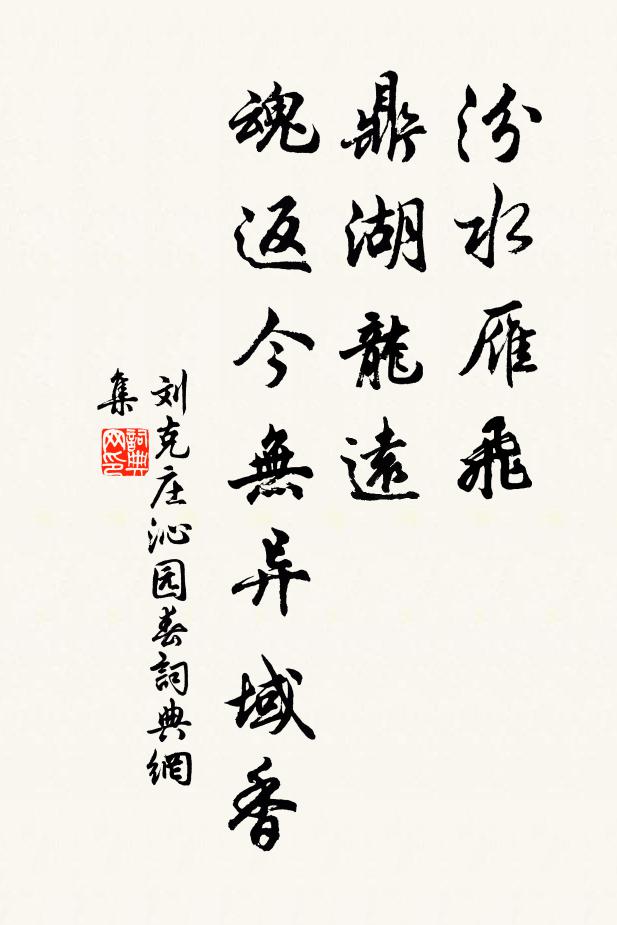 汾水雁飛
鼎湖龍遠
魂返今無异域香
刘克庄沁园春詞典網
集
詞典
网印